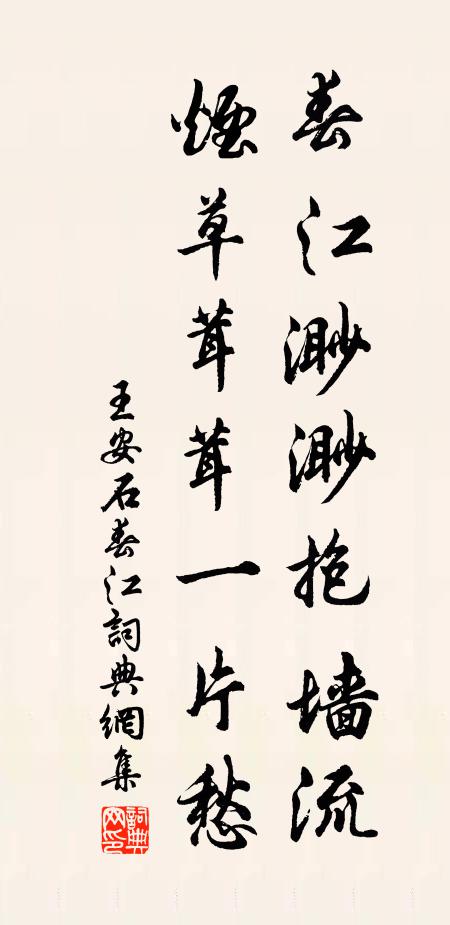 春江渺渺抱墙流
煙草茸茸一片愁
王安石春江詞典網集
詞典网印